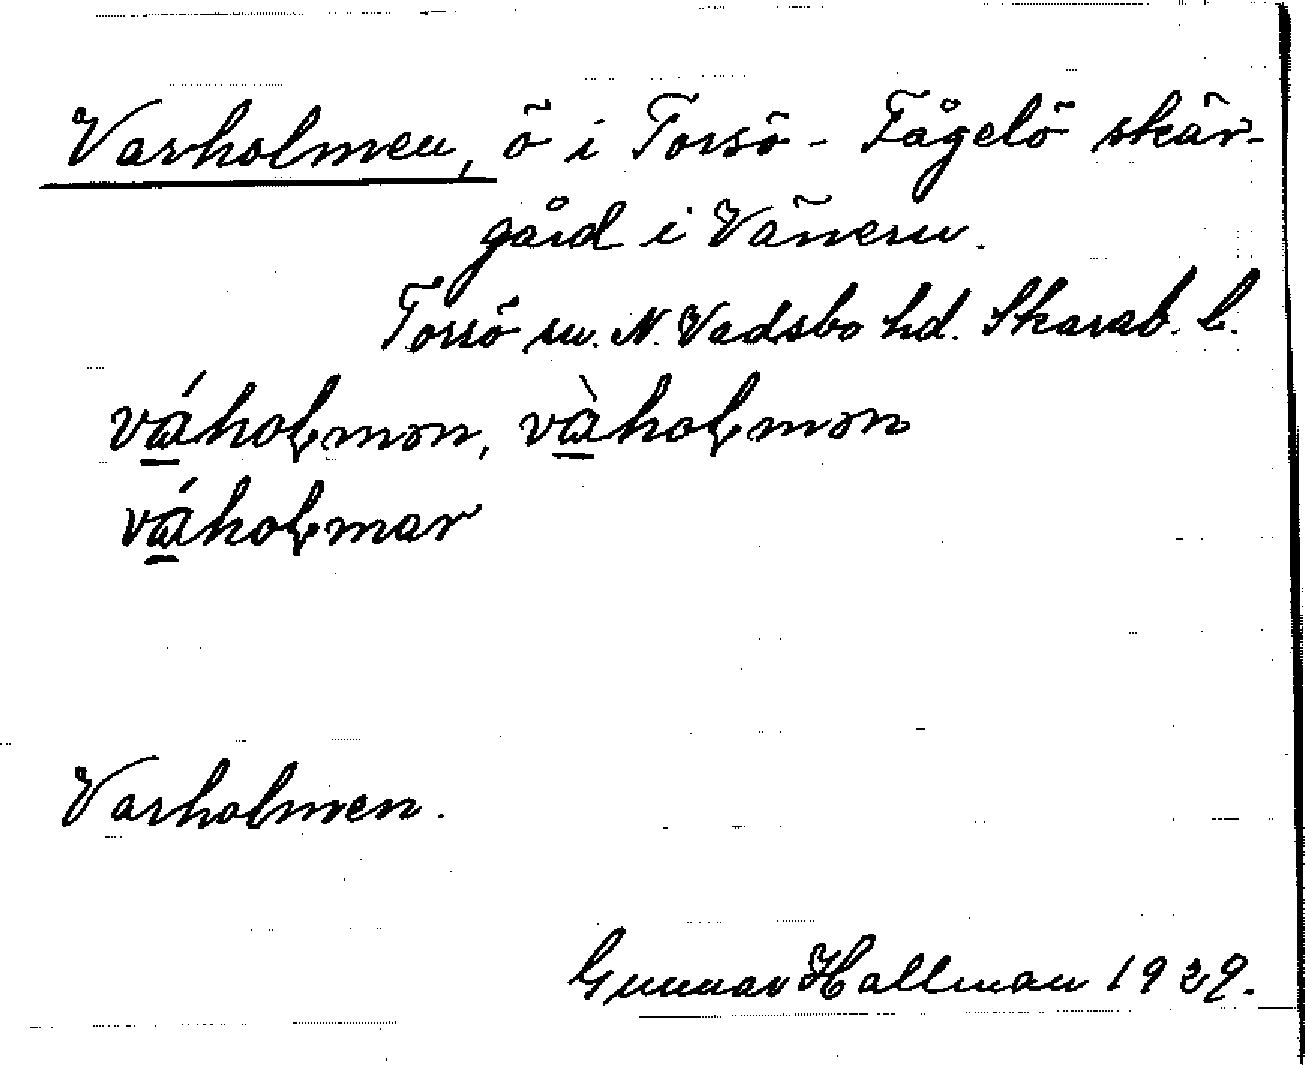 Varholmen, ö i Torsö - Fågelö skär-
gård i Vänern.
Torsö sn. N. Vadsbo hd. Skarab. l.
vá̱holmən, và̱holmən
vá̱holmar
Varholmen.
Gunnar Hallman 1929.